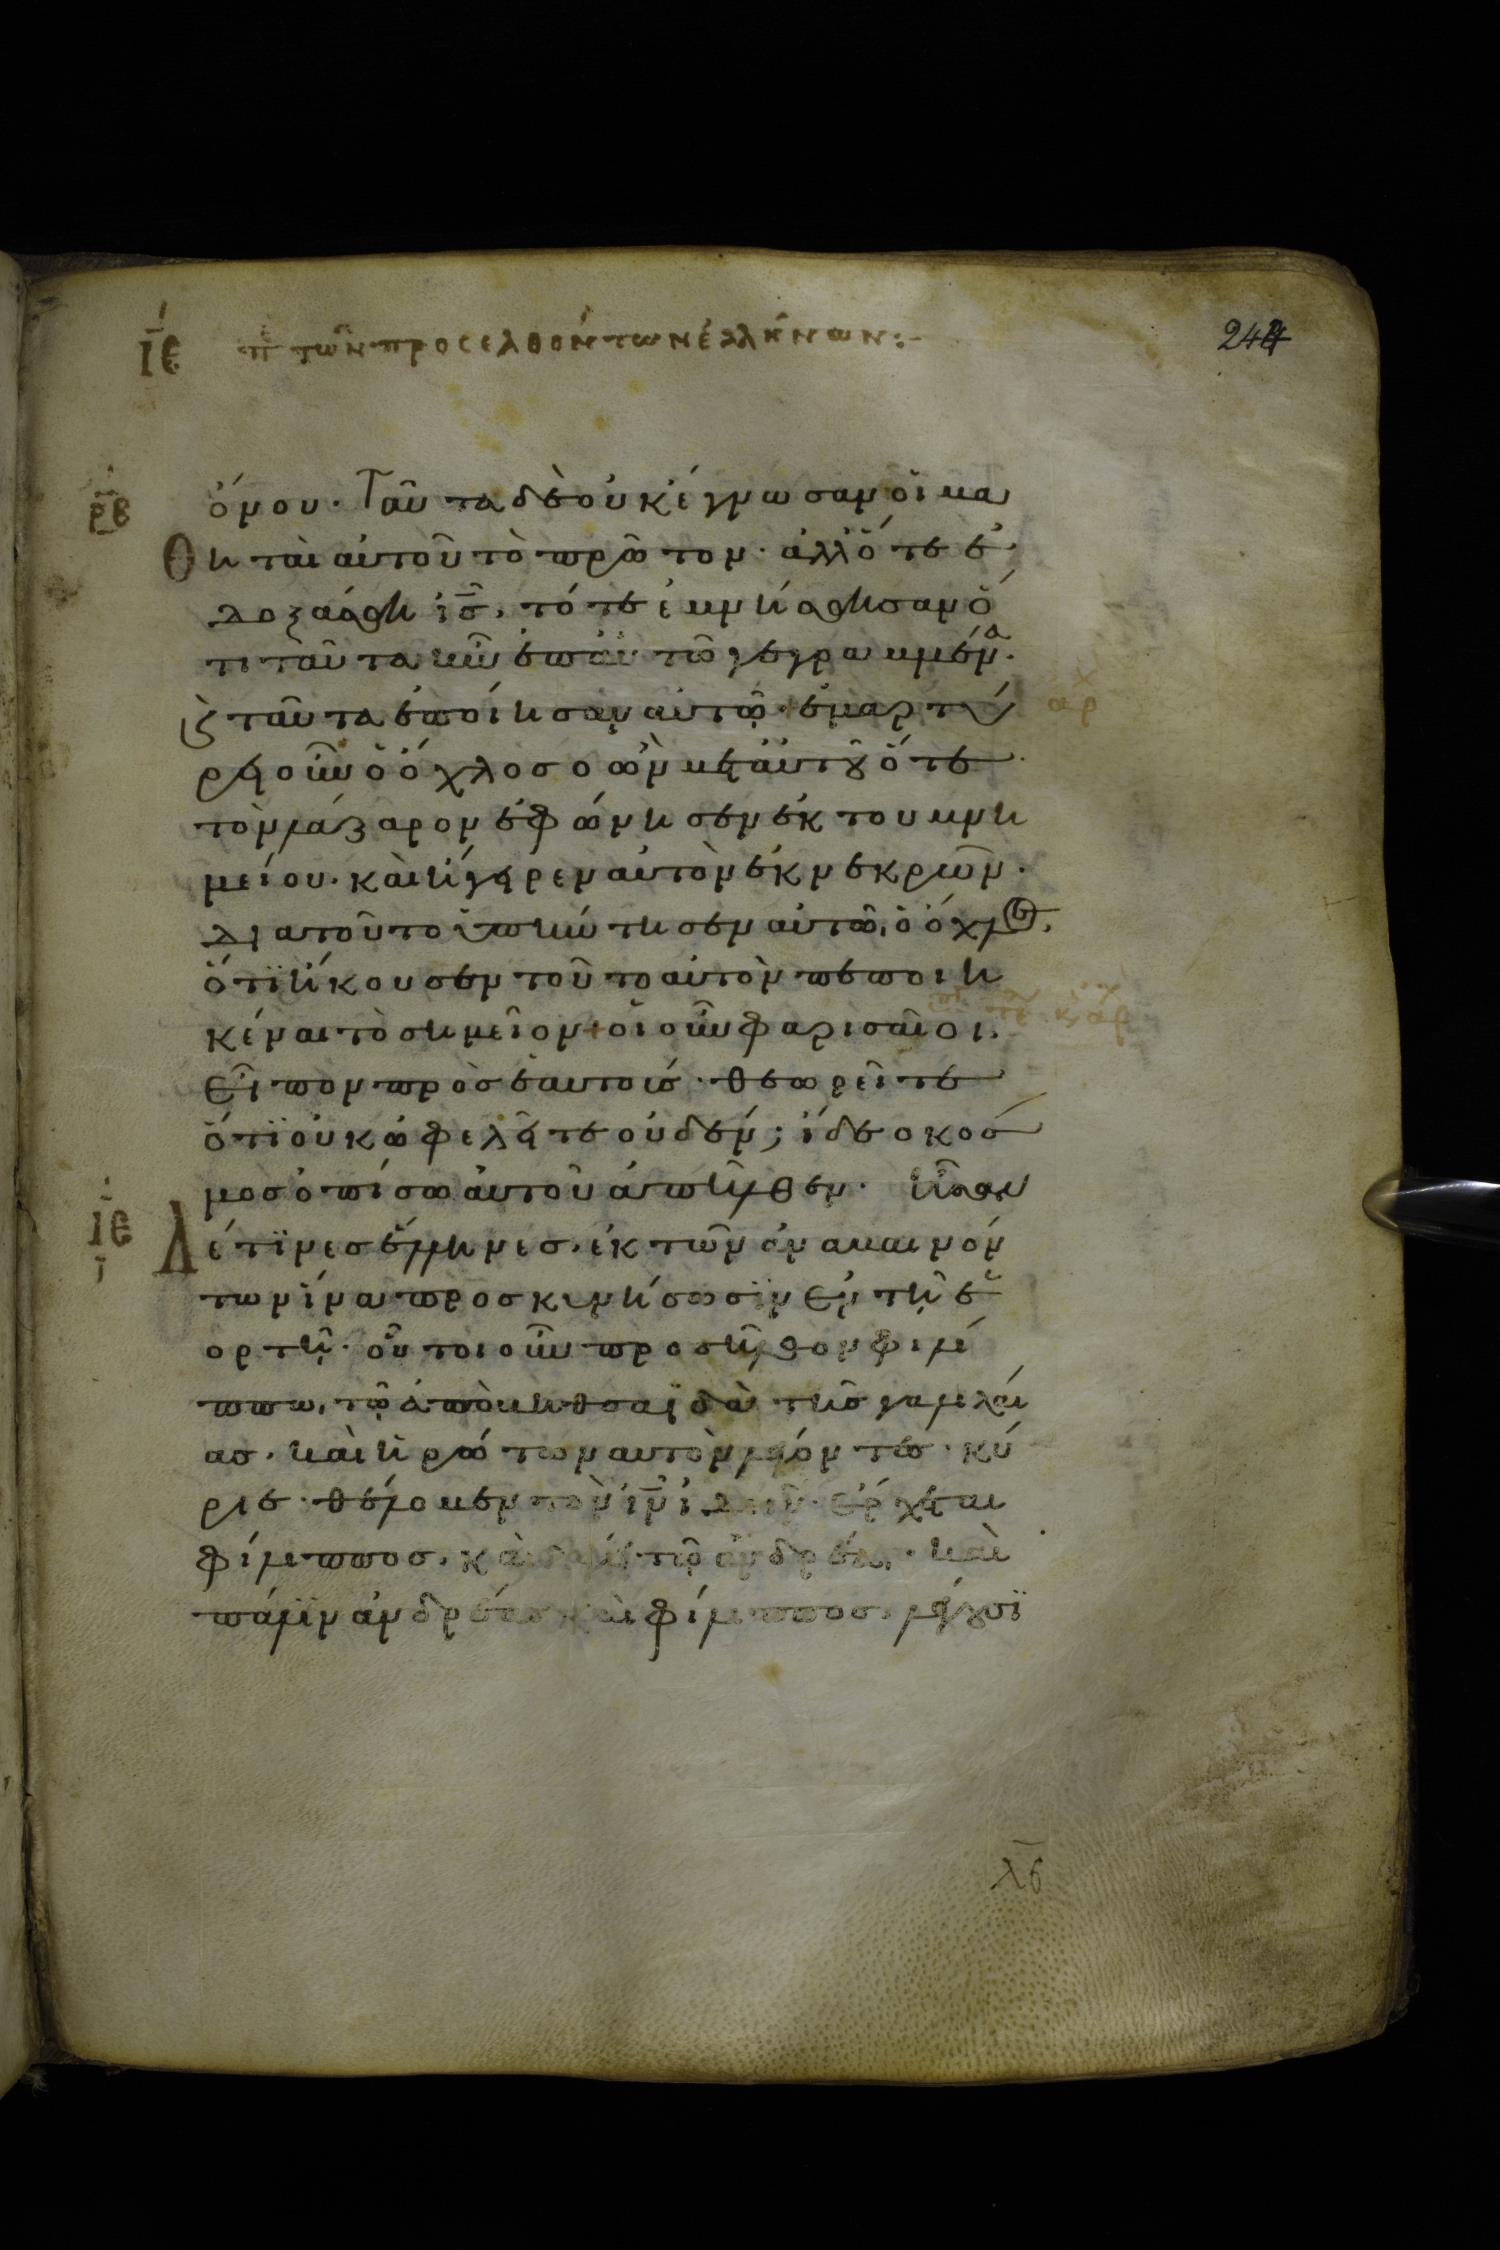 ΙΕ π τῶν προσελθόντων ἑλλήνων:-
244
ρβ
όνου. Ταῦτα δὲ οὐκ έγνωσαν οἱ μα
θηταὶ αὐτοῦ τὸ πρῶτον. ἀλλ' ὅτε ἐ
δοξάσθη ις, τότε ἐμνήσθησαν ὅ
τι ταῦτα ἦν ἐπ' αὐτῷ γεγραμμένα.
κ ταῦτα ἐποίησαν αὐτῷ. ἐμαρτύ
ρει οὖν ὁ όχλος ὁ ὢν μετ' αὐτοῦ ὅτε
τὸν λάζαρον ἐφώνησεν ἐκ του μνη
μείου. καὶ ἤγειρεν αὐτὸν ἐκ νεκρῶν.
διατοῦτο ὑπήντησεν αὐτῶ, ὁ όχλος,
ὅτι ἤκουσεν τοῦτο αὐτὸν πεποιη
κέναι τὸ σημεῖον + οἱ οὖν φαρισαῖοι,
εἶπον πρὸς ἑαυτούς. θεωρεῖτε
ὅτι οὐκ ὠφελεῖτε οὐδέν; ίδε ο κόσ
μος ὀπίσω αὐτοῦ ἀπῆλθεν. ἦσαν
ΙΕ
ι
Δέ τινες ἕλληνες, ἐκ τῶν ἀναβαινόν
των ίνα προσκυνήσωσιν ἐν τῇ ἑ
ορτῇ. οὗτοι οὖν προσῆλθον φιλί
ππω, τῷ ἀπὸ βηθσαϊδὰ τῆς γαλιλαί
ας. καὶ ἠρώτων αὐτὸν λέγοντες. κύ
ριε. θέλομεν τὸν ιν ἰδεῖν. ἔρχεται
φίλιππος, καὶ λέγει τῷ ἀνδρέα. καὶ
πάλιν ἀνδρέας καὶ φίλιππος, λέγουσι
λβ